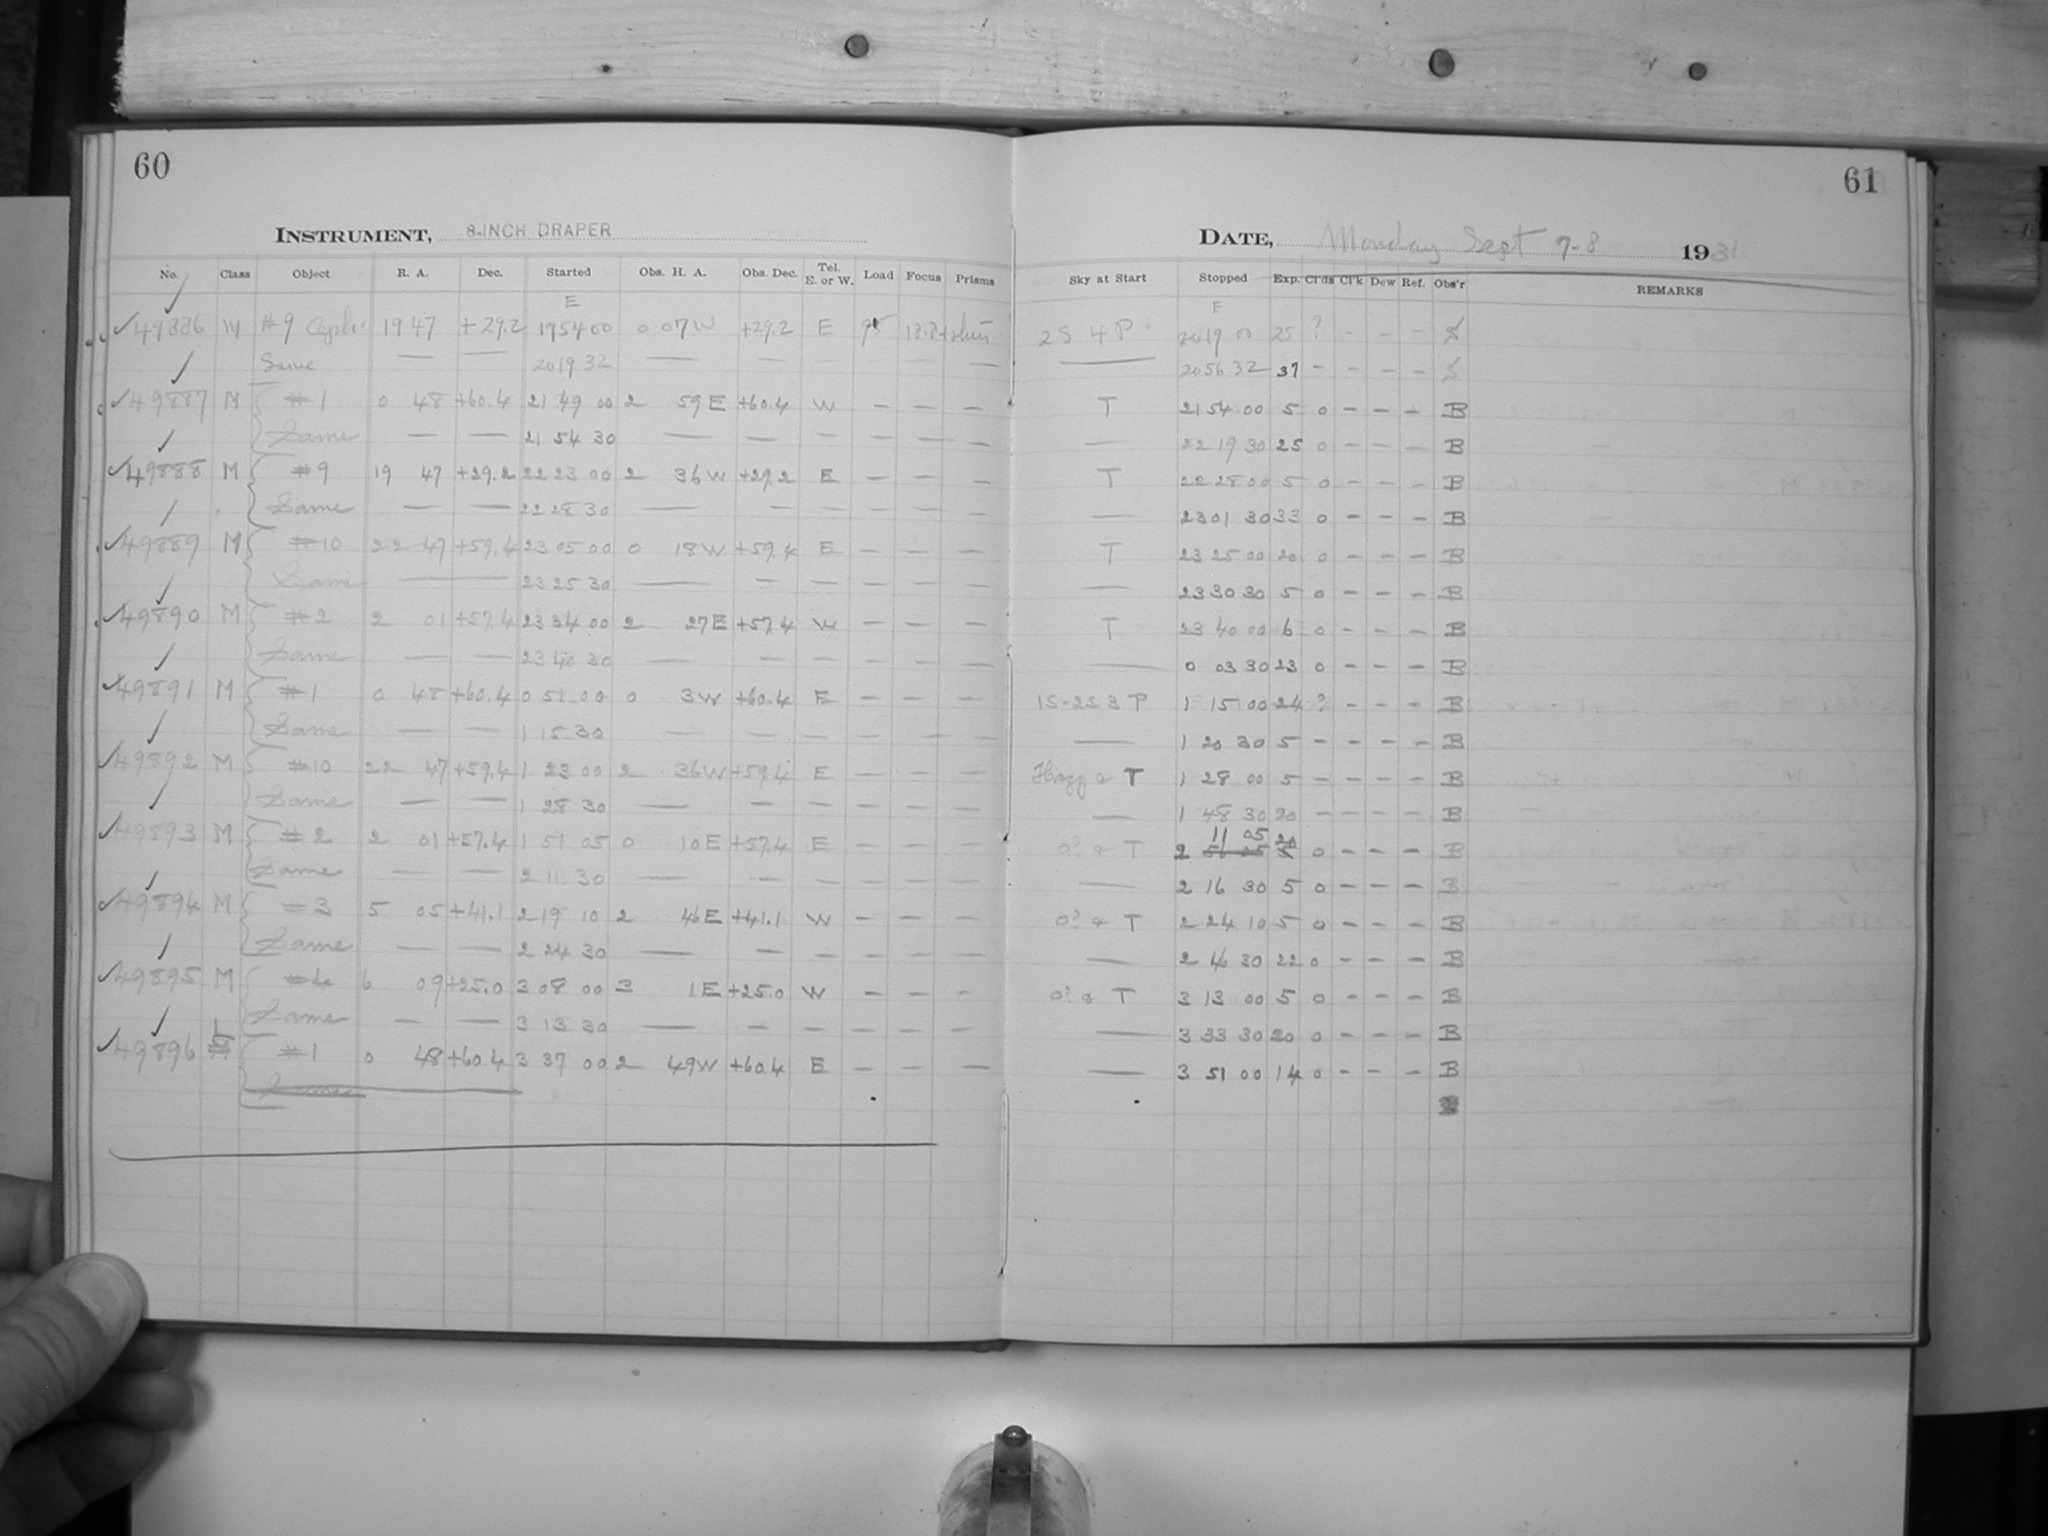 60
INSTRUMENT, 8-INCH DRAPER
No. Class Object R. A. Dec. Started Obs. H. A. Obs. Dec. Tel. E. or W. Load Focus Prisms
E
49886 M #9 19 47 +29.2 19 54 00 0 07 W +29.2 E
Same — — 20 19 32 — — — —
49887 M #1 0 48 +60.4 21 49 00 2 59 E +60.4 W — — —
Same — — 21 54 30 — — — — — —
49888 M #9 19 47 +29.2 22 23 00 2 36 W +29.2 E — — —
Same — — 22 28 30 — — — — — —
49889 M #10 22 47 +59.4 23 05 00 0 18 W +59.4 E — — —
Same — — 23 25 30 — — — — — —
49890 M #2 2 01 +57.4 23 34 00 2 27 E +57.4 W — — —
Same — — 23 40 30 — — — — — —
49891 M #1 0 48 +60.4 0 51 00 0 3 W +60.4 E — — —
Same — — 1 15 30 — — — — — —
49892 M #10 22 47 +59.4 1 23 00 2 36 W +59.4 E — — —
Same — — 1 28 30 — — — — — —
49893 M #2 2 01 +57.4 1 51 05 0 10 E +57.4 E — — —
Same — — 2 11 30 — — — — — —
49894 M #3 5 05 +41.1 2 19 10 2 46 E +41.1 W — — —
Same — — 2 24 30 — — — — — —
49895 M #4 6 09 +25.0 3 08 00 3 1 E +25.0 W — — —
Same — — 3 13 30 — — — — — —
49896 #1 0 48 +60.4 3 37 00 2 49 W +60.4 E — — —
Same
61
DATE, Monday Sept 7-8 1931
Sky at Start Stopped Exp. Cl'ds Cl'k Dew Ref. Obs'r REMARKS
E
2S 4P 20 19 00 25 ? — — —
— 20 56 32 37 — — — —
T 21 54 00 5 0 — — — B
— 22 19 30 25 0 — — — B
T 22 28 00 5 0 — — — B
— 23 01 30 33 0 — — — B
T 23 25 00 20 0 — — — B
— 23 30 30 5 0 — — — B
T 23 40 00 6 0 — — — B
— 0 03 30 23 0 — — — B
1S-2S 3 P 1 15 00 24 ? — — — B
— 1 20 30 5 — — — — B
Hazy & T 1 28 00 5 — — — — B
— 1 48 30 20 — — — — B
11 05 20
0? & T 2 56 05 5 0 — — — B
— 2 16 30 5 0 — — — B
0? & T 2 24 10 5 0 — — — B
— 2 46 30 22 0 — — — B
0? & T 3 13 00 5 0 — — — B
— 3 33 30 20 0 — — — B
— 3 51 00 14 0 — — — B